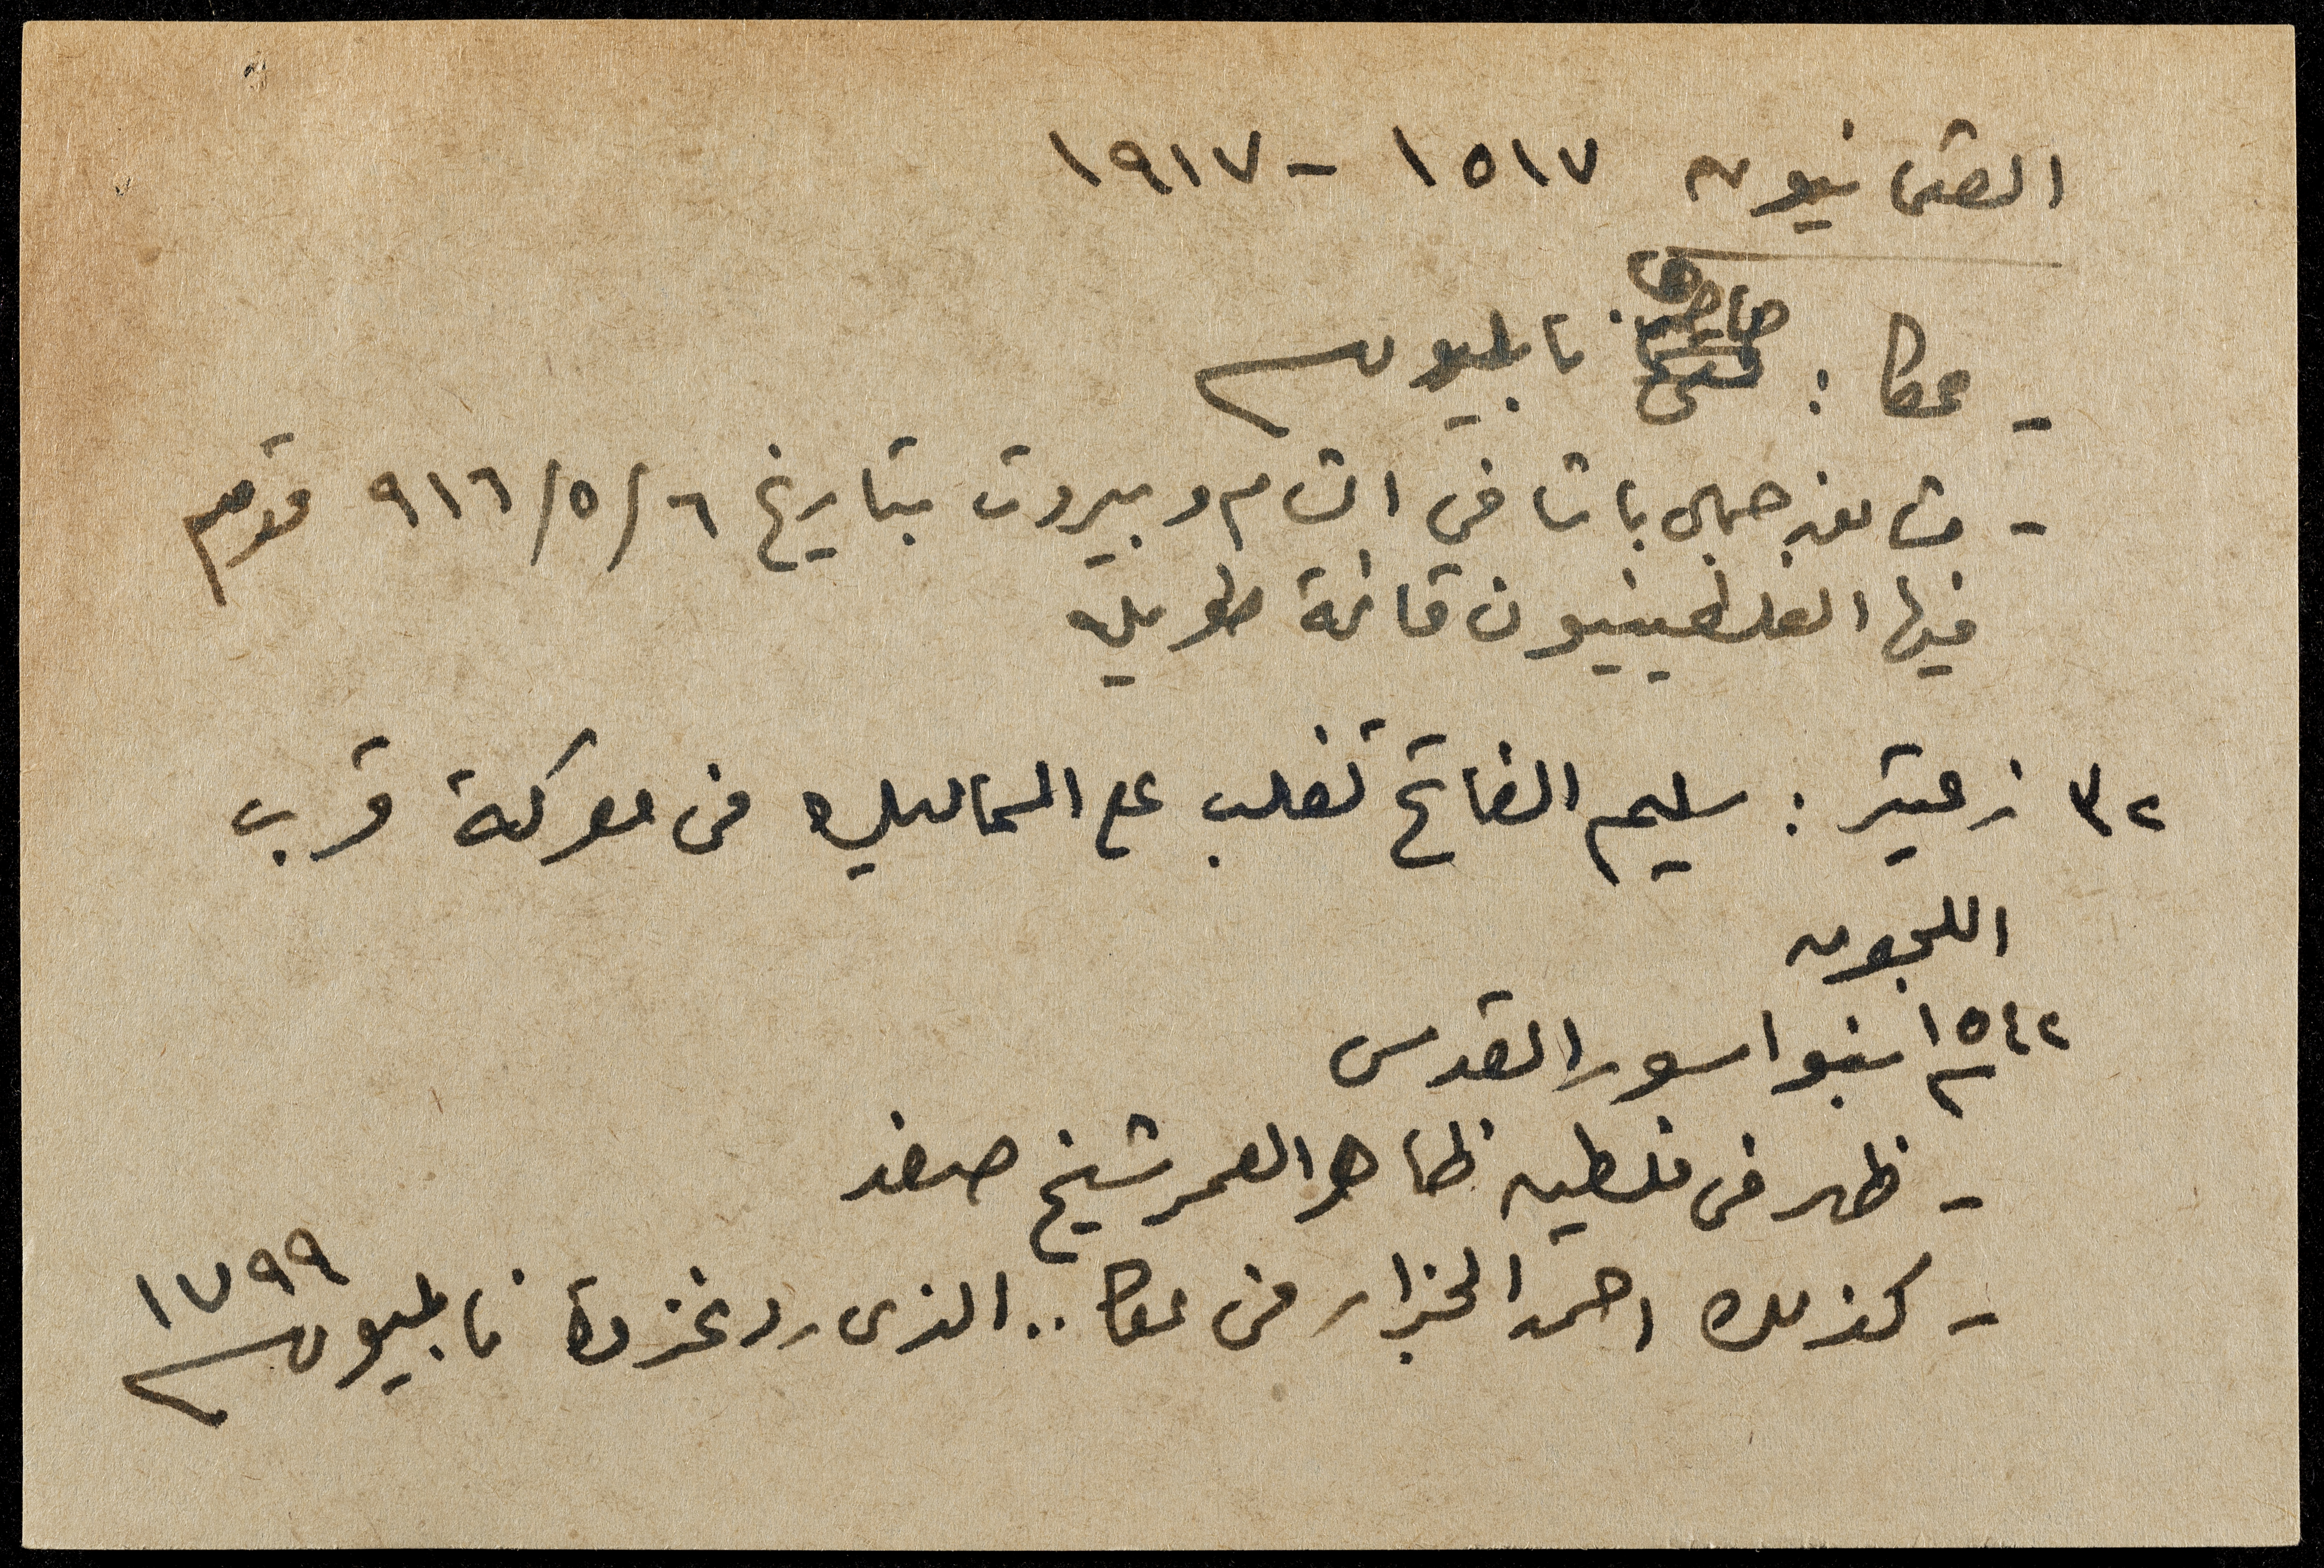 العثمانيون ١٥١٧ - ١٩١٧
- عكا : حاصرها نابليون
- مشانق جمال باشا في الشام وبيروت بتاريخ ٦/٥/٩١٦ قدم
فيها الفلسطينيون قائمة طويلة
٣٢ زعيتر : سليم الفاتح تغلب على المماليك في معركة قرب
اللجون
١٥٤٢ بنوا سور القدس
- ظهر في فلسطين ظاهر العمر شيخ صفد
- كذلك احمد الجزار في عكا .. الذي رد غزوة نابليون ١٧٩٩